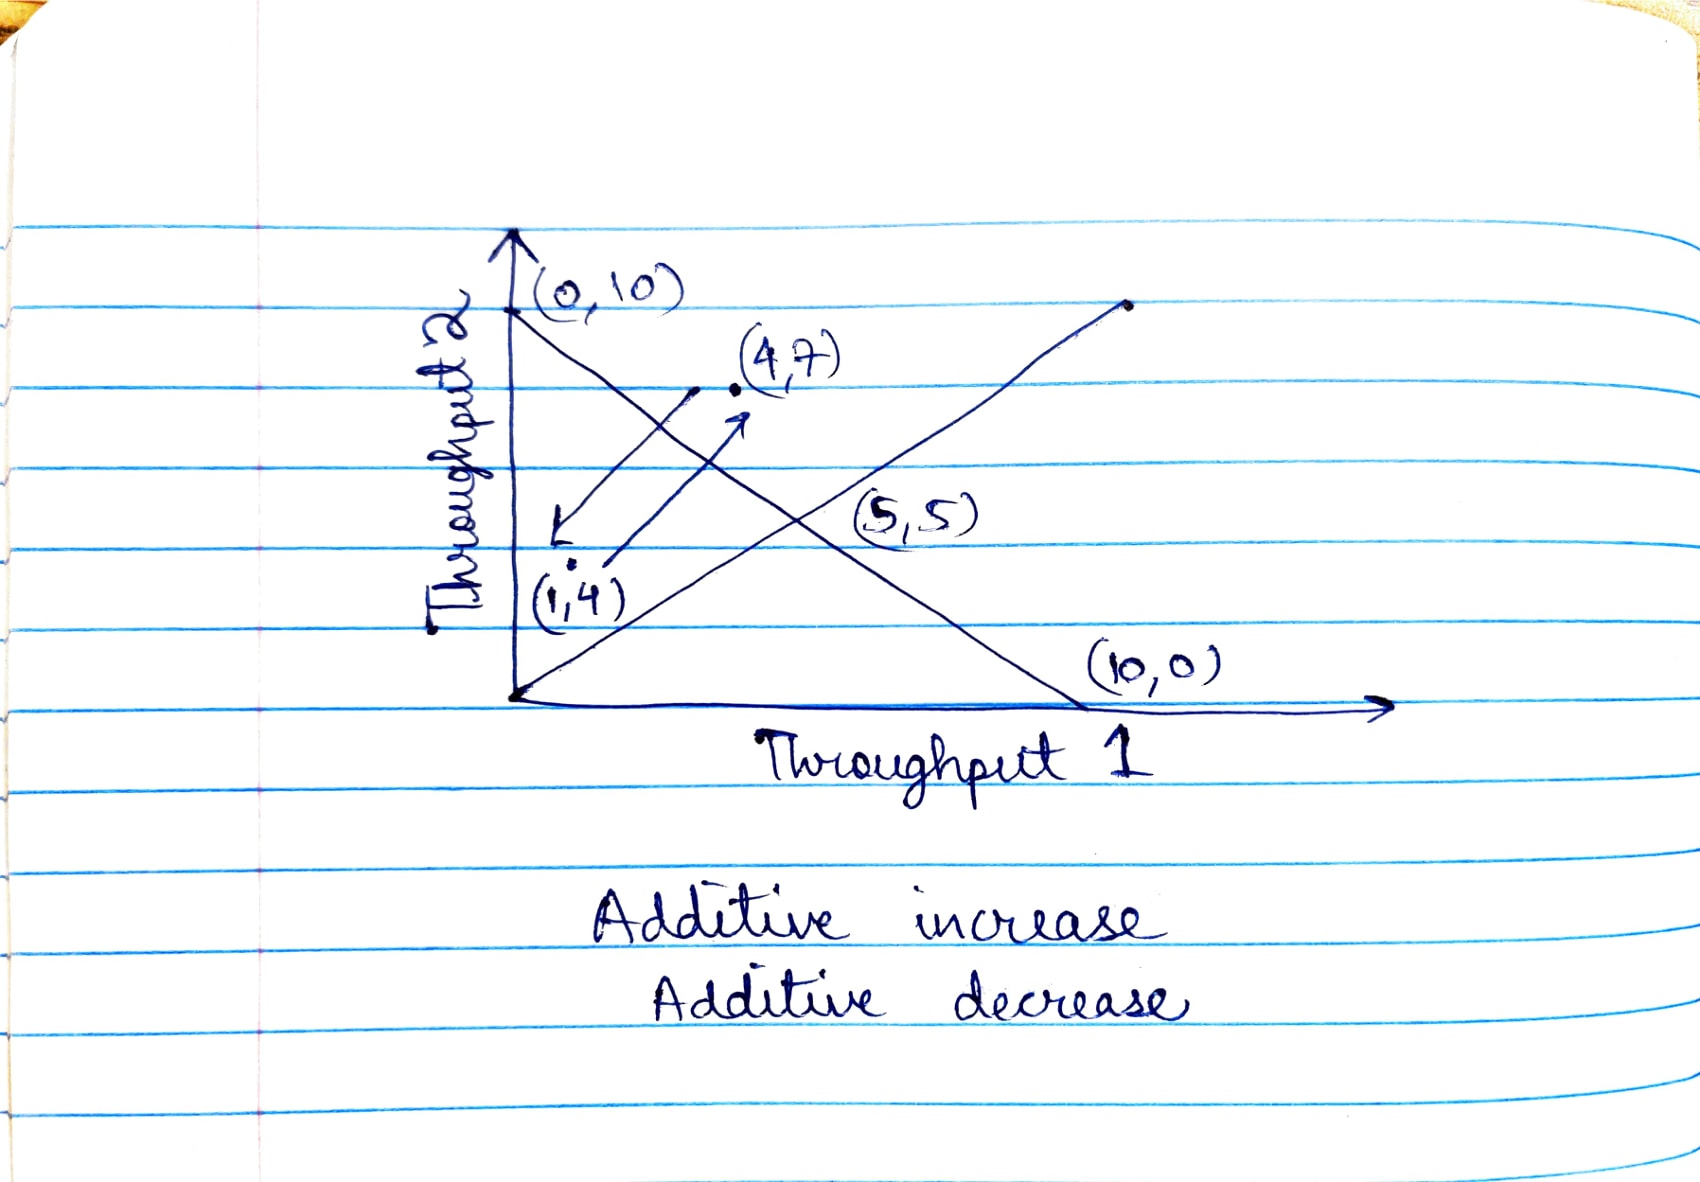 (0,10)
(4,7)
Throughput 2
(5,5)
(1,4)
(10,0)
Throughput 1
Additive increase
Additive decrease